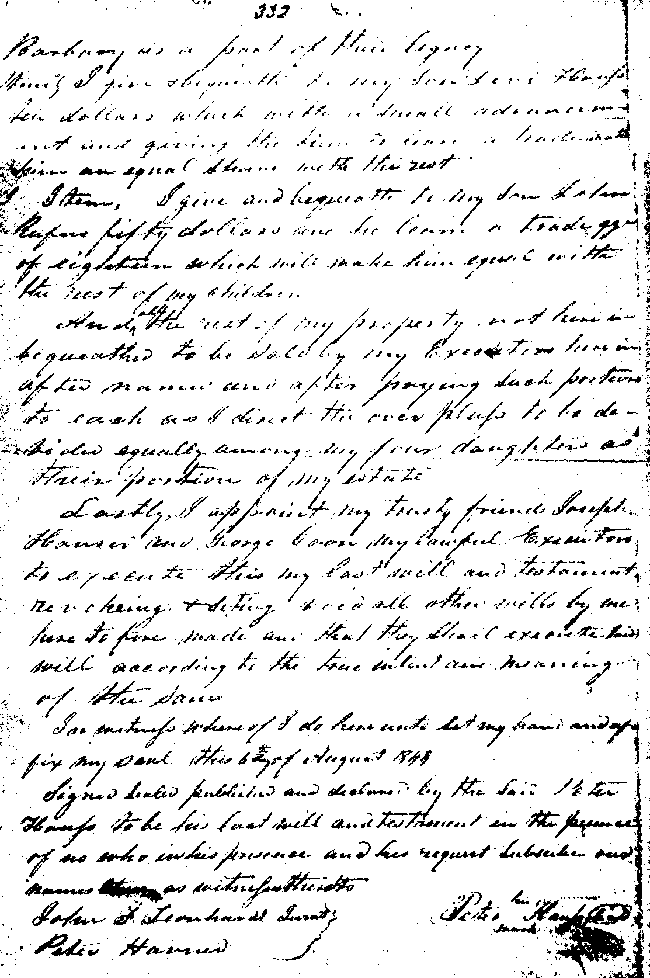 332
Barbary as a part of their legacy
Item I give & bequeath to my son Levi Haups
ten dollars which with a small advancem
ent and giving the him to learn a trade
him an equal share with the rest
Item, I give and bequeath to my son John
Rufus fifty dollars and he learn a trade
of eighteen which will make him equal with
the rest of my children
And all the rest of my property not herein
bequeathed to be sold by my Executors herein
after named and after paying such portions
to each as I direct the over plufs to be de-
vided equally among my four daughters as
their portion of my estate
Lastly, I appoint my trusty friend Joseph
Hauser and George Coon my lawful Executors
to execute this my last will and testament,
revokeing & seting void all other wills by me
here to fore made and that they shall execute this
will according to the true intent and meaning
of the same
In witness where of I do here unto set my hand and af
fix my seal this 6th of August 1848
Signed sealed published and declared by the said Peter
Haups to be his last will and testment in the presence
of us who in his presence and his request subscribe our
names as witness thereto
John L Leonhard Jurat
Peter his Haups
mark
Peter Havner